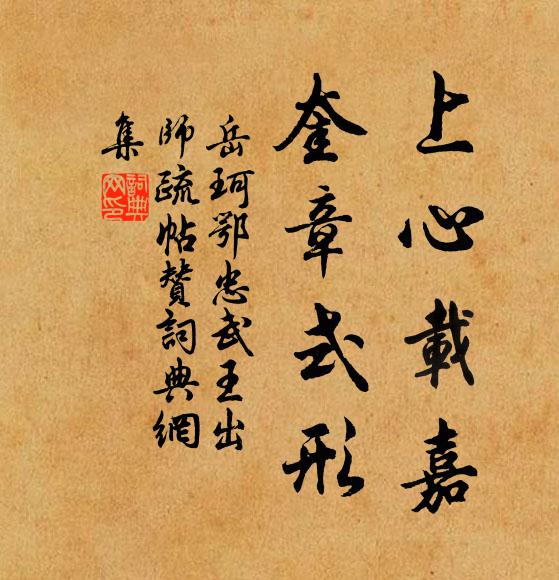 上心載嘉
奎章式形
岳珂鄂忠武王出
師疏帖贊詞典網
集
詞典網印